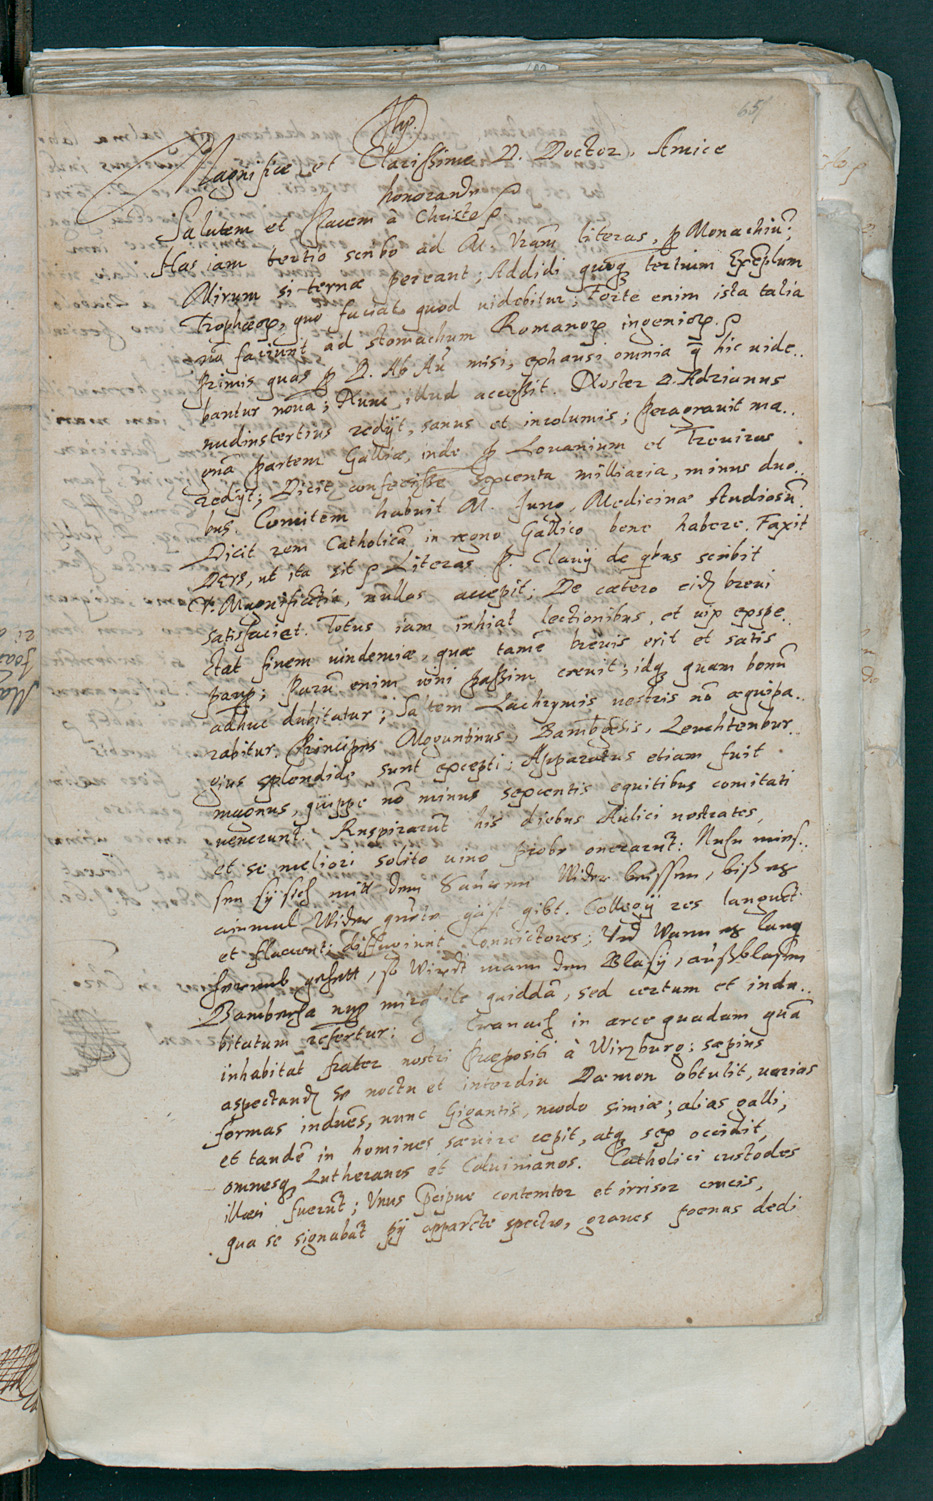 65
Magnifice et Clarissime D. Doctor, Amice
honorande
Salutem et Pacem à Christo
Has iam tertio scribo ad M. Vram literas, p Monachiū;
Mirum si ternæ pereant; Addidi quoq tertium Exēplum
Trophæoꝝ, quo faciat quod uidebitur; Forte enim ista talia
nō faciunt ad stomachum Romanoꝝ ingenioꝝ.
Primis quas p D. Ab Aū misi, exhausi omnia q̄ hic uide..
bantur noua; Nunc illud accessit. Noster D. Adrianus
nudiustertius redijt, sanus et incolumis; peragrauit ma..
gnā partem Galliæ, inde p Louanium et Treuiros
redijt; Dicit confecisse sexcenta milliaria, minus duo..
bus. Comitem habuit M. Jung, Medicinæ studiosū.
Dicit rem Catholicā in regno Gallico bene habere. Faxit
Deus, ut ita sit. Literas P. Clauij de qbus scribit
V. Magnificētia, nullas accepit; De cætero eidē breui
satisfaciet. Totus iam inhiat lectionibus, et uix exspe..
ctat finem uindemiæ, quæ tamē breuis erit et satis
parū; parū enim uini passim creuit; idq quam bonū
adhuc dubitatur; Saltem Lachrymis uestris nō æquipa..
rabitur. Principes Moguntinus, Bambergēsis, Leuchtenbur..
gius splendide sunt excepti; Apparatus etiam fuit
magnus, quippe nō minus sexcentis equitibus comitati
uenerunt. Respirarūt his diebus Aulici nostrates,
et se meliori solito uino probe onerarūt: Nuhn müess..
sen sy sich mitt dem Sauren wider büessen, biß es
ainmal wider guete gäst gibt. Collegij res languēt
et flaccent; diffugiunt Conuictores; Vnd wann es lang
herumb gehett, so wirdt mann den Blasÿ, außblasen
Bamberga nup mirabile quiddā, sed certum et indu..
bitatum refertur: Cranach in arce quadam quā
inhabitat frater nostri Præpositi à Wirzburg; sæpius
aspectandū se noctu et interdiu Dæmon obtulit, uarias
formas induēs, nunc Gigantis, modo simiæ; alias galli,
et tandē in homines sæuire cepit, atq sex occidit,
omnesq Lutheranos et Caluinianos. Catholici custodes
illæsi fuerūt; Vnus p̄cipue contemtor et irrisor crucis,
qua se signabāt pij apparēte spectro, graues poenas dedi